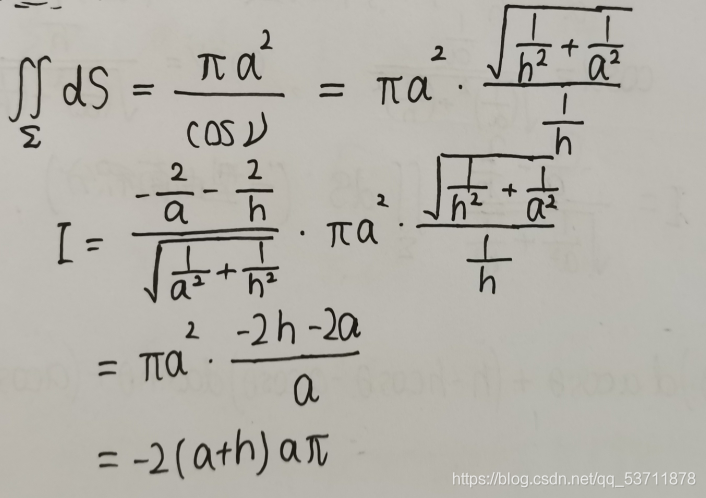 ∬_Σ dS = πa² / cosν = πa² · √(1/h² + 1/a²) / (1/h)
I = (-2/a - 2/h) / √(1/a² + 1/h²) · πa² · √(1/h² + 1/a²) / (1/h)
= πa² · (-2h-2a) / a
= -2(a+h)aπ
https://blog.csdn.net/qq_53711878